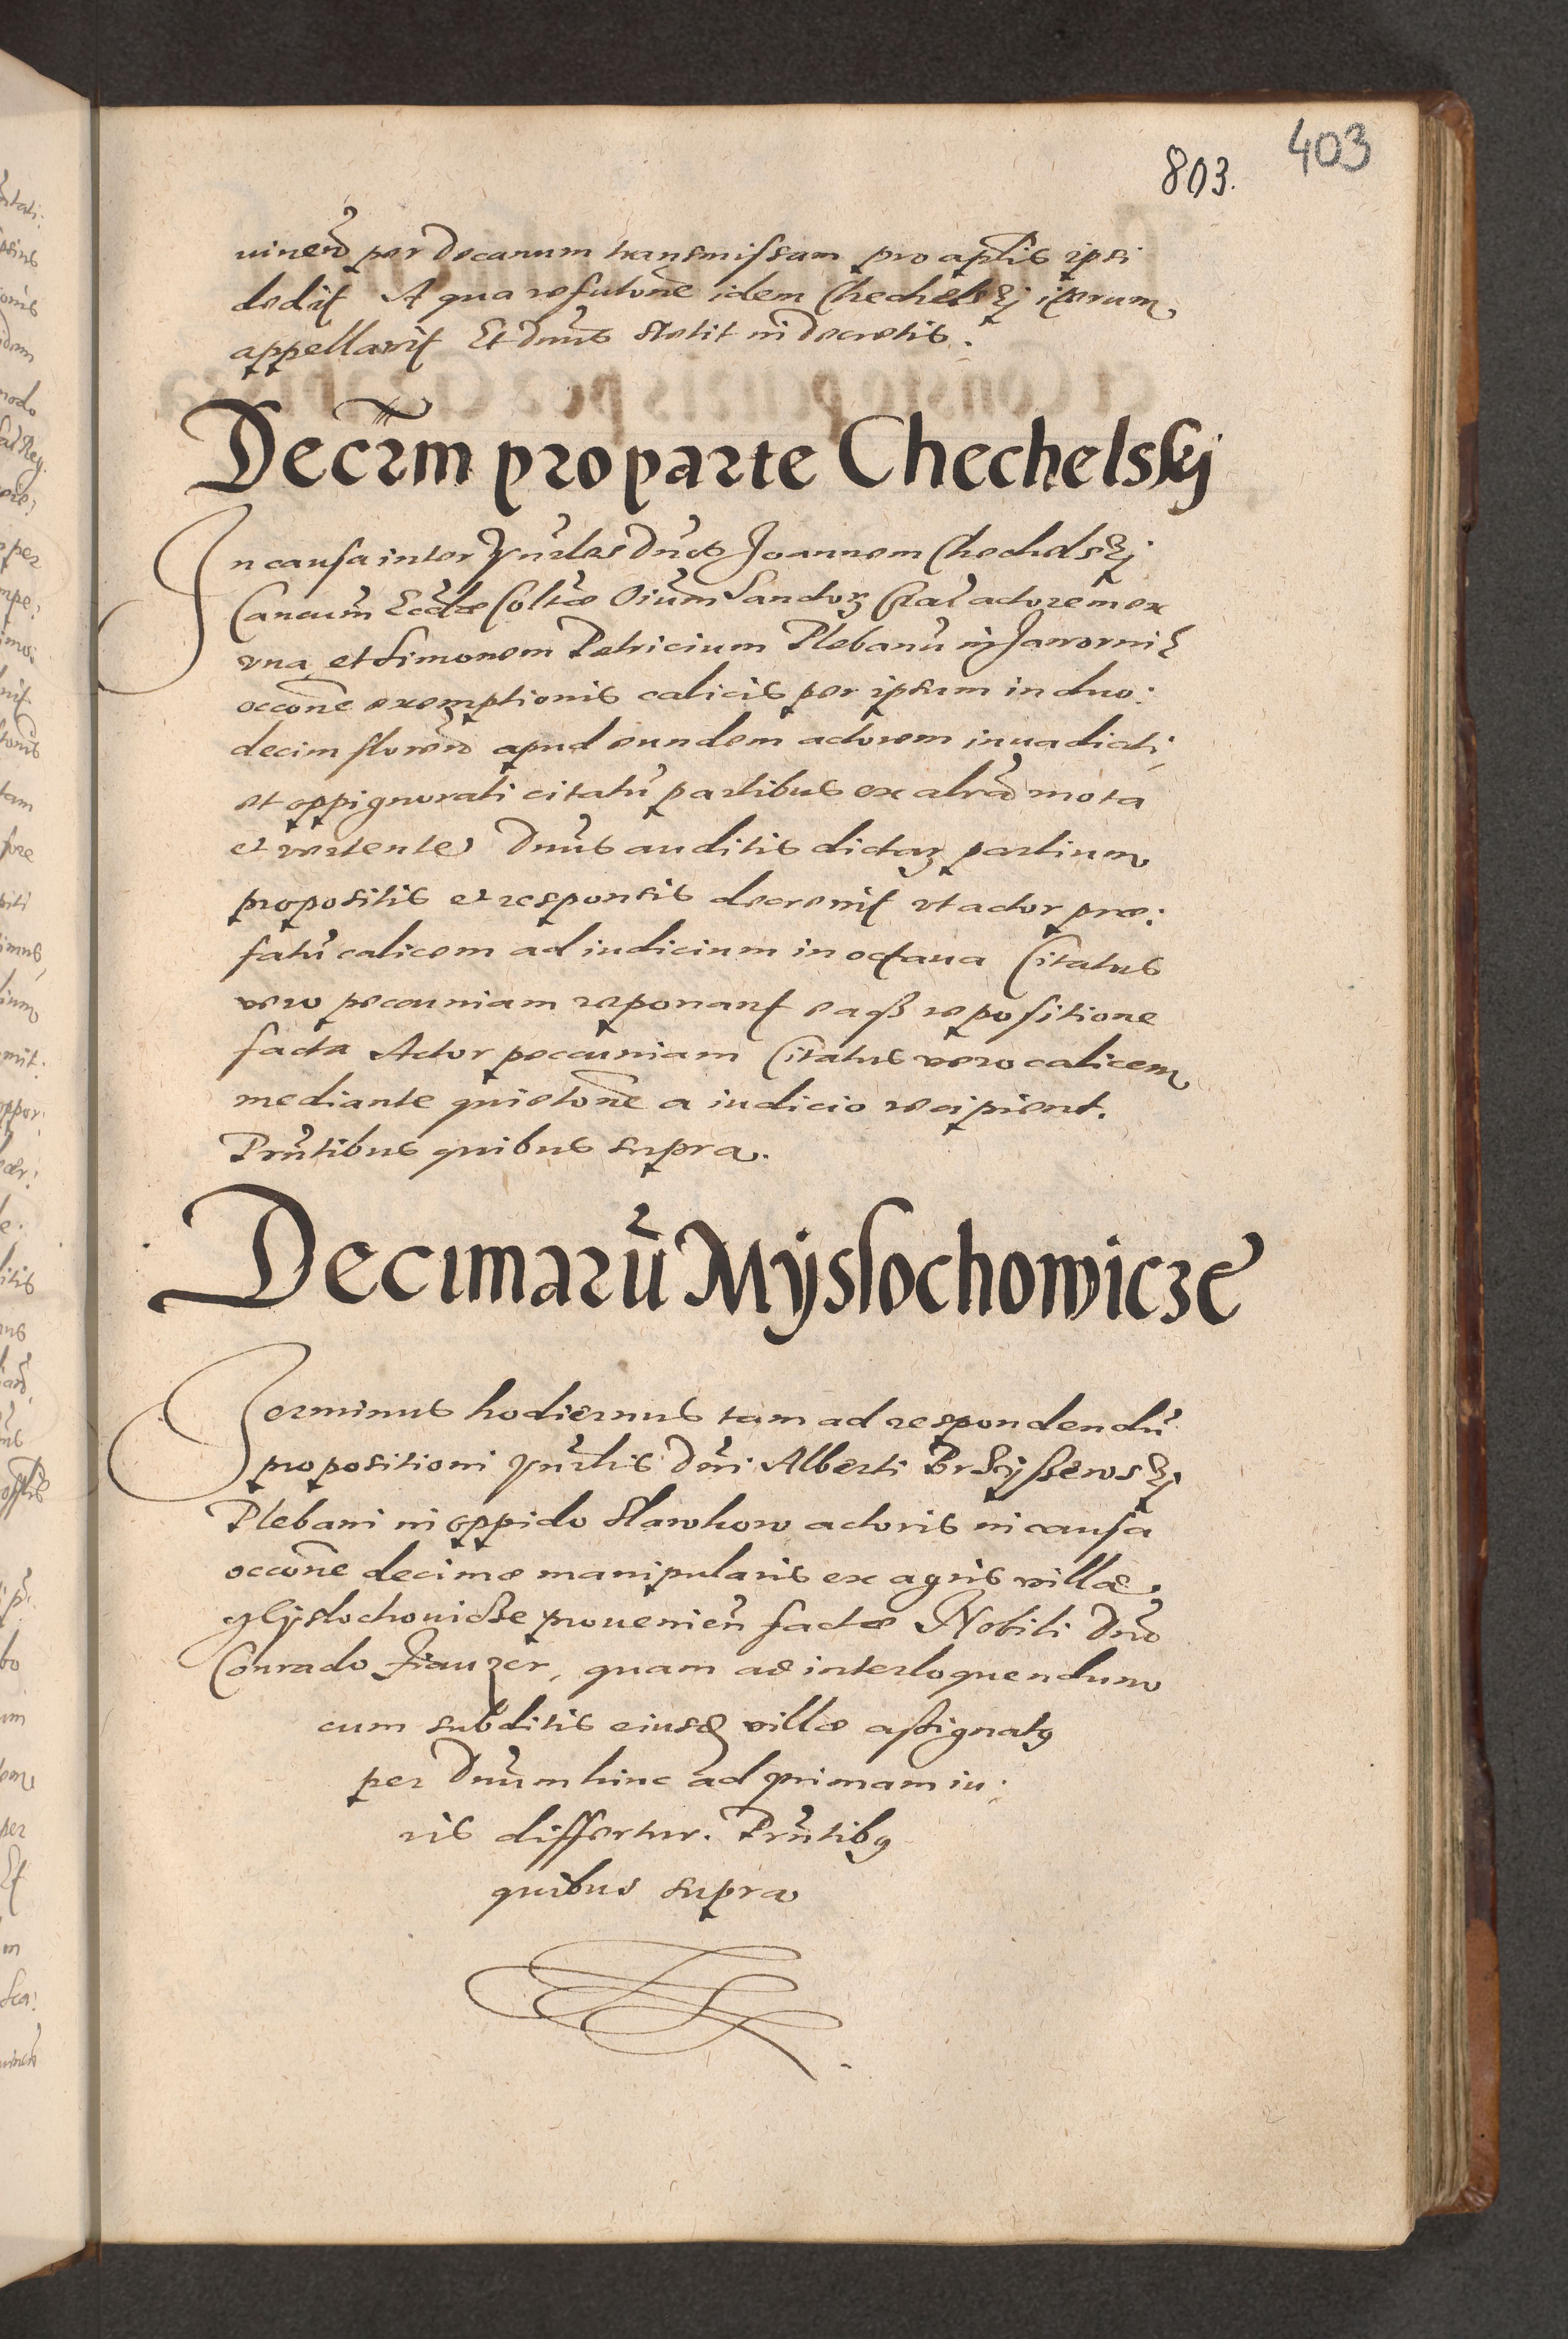 403
803.
uineñ per Decanum transmissam pro aptlis ipsi
dedit A qua refutone idem Chechelskj iterum
appellauit Et Dnus stetit in decretis.
Decrm pro parte Chechelskj
In causa inter Dnos Joannem Chechelskj
Cancum Eccliæ Coltæ Oium Sanctorꝝ Crac actorem ex
vna et Simonem Petricium Plebanū in Jawornik
occone exemptionis calicis per ipsum in duo:
decim floreñ apud eundem actorem inuadiati,
et oppignorati citatū partibus ex altra mota
et vertente Dnus auditis dictarꝝ partium
propositis et responsis decreuit vt actor præ:
fatū calicem ad iudicium in octaua Citatus
vero pecuniam reponant eaqꝫ repositione
facta Actor pecuniam Citatus vero calicem
mediante quietone a iudicio recipient.
Prñtibus quibus supra.
Decimarū Myslochowicze
Terminus hodiernus tam ad respondendū
propositioni Dni Alberti
Plebani in oppido Slawkow actoris in causa
occone decimæ manipularis ex agris villæ
Myslochouicze prouenieñ factæ Nobili Dno
Conrado quam ad interloquendum
cum subditis eiusdꝫ villæ assignatꝰ
per Dnum hinc ad primam iu:
ris differtur. Prñtibꝰ
quibus supra